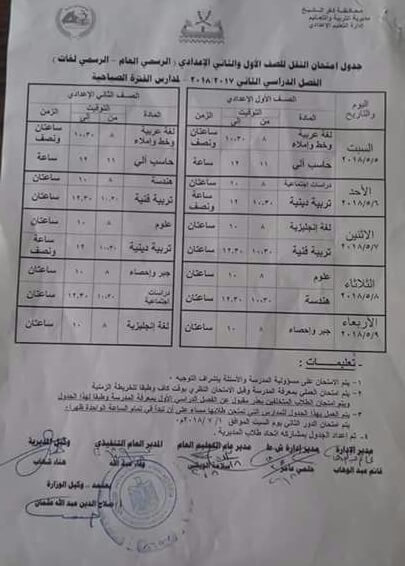 محافظة كفر الشيخ
مديرية التربية والتعليم
إدارة التعليم الإعدادي
جدول امتحان النقل للصف الأول والثاني الإعدادي ( الرسمي العام – الرسمي لغات )
الفصل الدراسي الثاني ٢٠١٨/٢٠١٧ - لمدارس الفترة الصباحية
اليوم والتاريخ | الصف الأول الإعدادي | الصف الثاني الإعدادي
المادة | التوقيت من إلى | الزمن | المادة | التوقيت من إلى | الزمن
السبت ٢٠١٨/٥/٥ | لغة عربية وخط وإملاء | ٨ | ١٠.٣٠ | ساعتان ونصف | لغة عربية وخط وإملاء | ٨ | ١٠.٣٠ | ساعتان ونصف
حاسب آلي | ١١ | ١٢ | ساعة | حاسب آلي | ١١ | ١٢ | ساعة
الأحد ٢٠١٨/٥/٦ | دراسات اجتماعية | ٨ | ١٠ | ساعتان | هندسة | ٨ | ١٠ | ساعتان
تربية دينية | ١٠.٣٠ | ١٢ | ساعة ونصف | تربية فنية | ١٠.٣٠ | ١٢.٣٠ | ساعتان
الاثنين ٢٠١٨/٥/٧ | لغة إنجليزية | ٨ | ١٠ | ساعتان | علوم | ٨ | ١٠ | ساعتان
تربية فنية | ١٠.٣٠ | ١٢.٣٠ | ساعتان | تربية دينية | ١٠.٣٠ | ١٢ | ساعة ونصف
الثلاثاء ٢٠١٨/٥/٨ | علوم | ٨ | ١٠ | ساعتان | جبر وإحصاء | ٨ | ١٠ | ساعتان
هندسة | ١٠.٣٠ | ١٢.٣٠ | ساعتان | دراسات اجتماعية | ١٠.٣٠ | ١٢.٣٠ | ساعتان
الأربعاء ٢٠١٨/٥/٩ | جبر وإحصاء | ٨ | ١٠ | ساعتان | لغة إنجليزية | ٨ | ١٠ | ساعتان
- تعليمـــات :
١ - يتم الامتحان على مسؤولية المدرسة والأسئلة بإشراف التوجيه .
٢ - يتم امتحان العملي بمعرفة المدرسة وقبل الامتحان النظري بوقت كاف وطبقا للخريطة الزمنية
ويتم امتحان الطلاب المتخلفين بعذر مقبول عن الفصل الدراسي الأول بمعرفة المدرسة وطبقا لهذا الجدول
٣ - يتم العمل بهذا الجدول للمدارس التي تمتحن طلابها مساء على أن تبدأ في تمام الساعة الواحدة ظهرا .
يتم امتحان الدور الثاني يوم السبت الموافق ٢٠١٨/٧/١م.
٤ - تم إعداد الجدول بمشاركة اتحاد طلاب المديرية .
مدير الإدارة | مدير إدارة ش.ط | مدير عام التعليم العام | المدير العام التنفيذي | وكيل المديرية
غانم عبد الوهاب | حلمي | سلامة | وفاء عبد الله | هناء شهاب
يعتمد،، وكيل الوزارة
صلاح الدين عبد الله عثمان